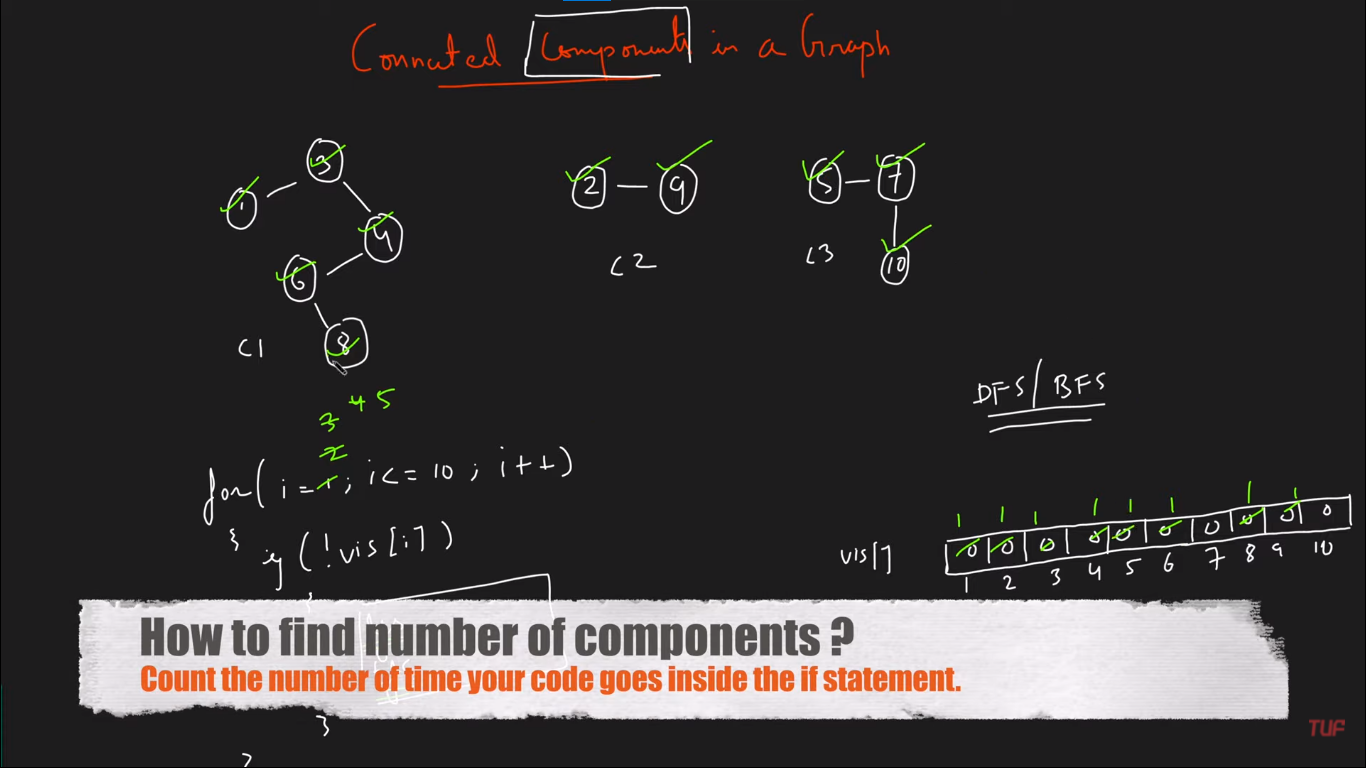 Connected Components in a Graph
3
1
4
6
8
C1
2 9
C2
5 7
10
C3
DFS/BFS
3 4 5
2
for( i=1; i<=10; i++)
{
if (!vis[i])
{
1 1 1 1 1 1 1 1
vis[] 0 0 0 0 0 0 0 0 0 0
1 2 3 4 5 6 7 8 9 10
How to find number of components ?
Count the number of time your code goes inside the if statement.
}
}
TUF